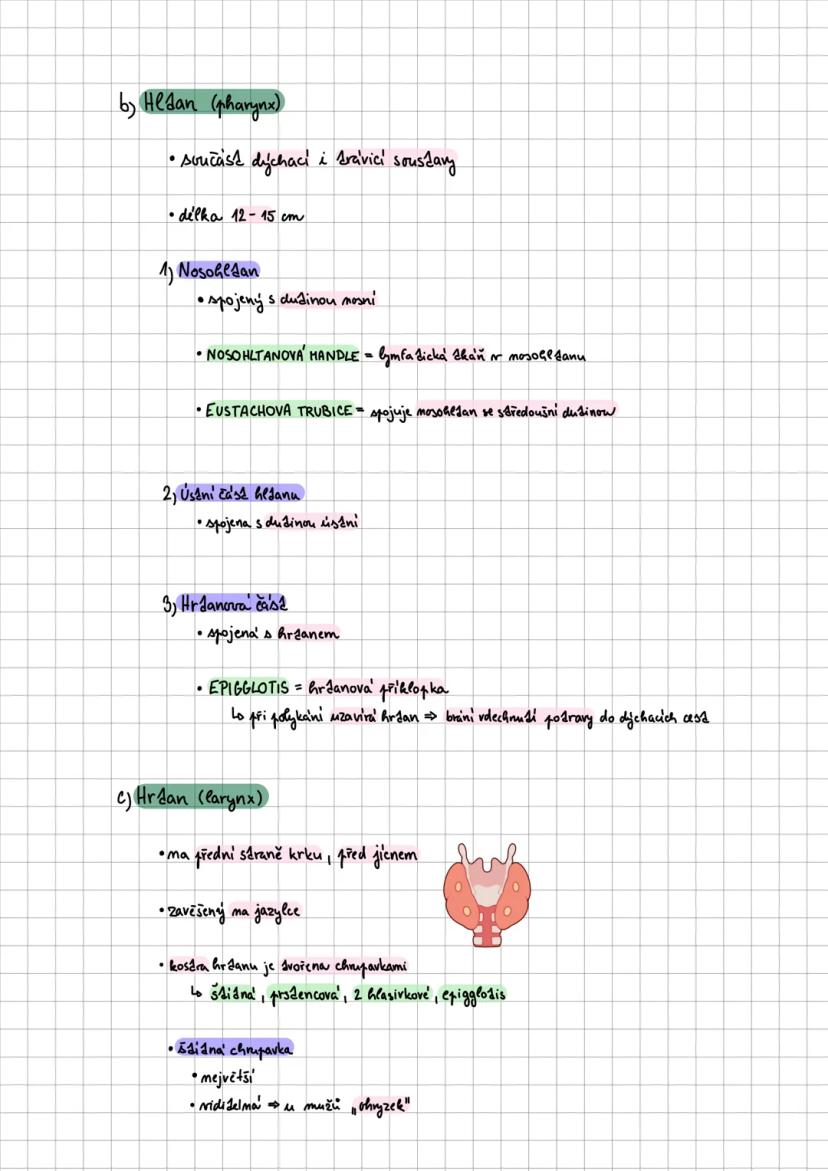 b) Hltan (pharynx)
• součást dýchací i trávicí soustavy
• délka 12-15 cm
1) Nosohltan
• spojený s dutinou nosní
• NOSOHLTANOVÁ MANDLE = lymfatická tkáň v nosohltanu
• EUSTACHOVA TRUBICE = spojuje nosohltan se středoušní dutinou
2) Ústní část hltanu
• spojena s dutinou ústní
3) Hrtanová část
• spojená s hrtanem
• EPIGGLOTIS = hrtanová příklopka
↳ při polykání uzavírá hrtan ⇒ brání vdechnutí potravy do dýchacích cest
c) Hrtan (larynx)
• na přední straně krku, před jícnem
• zavěšený na jazylce
• kostra hrtanu je tvořena chrupavkami
↳ štítná, prstencová, 2 hlasivkové, epigglotis
• štítná chrupavka
• největší
• viditelná ⇒ u mužů „ohryzek"